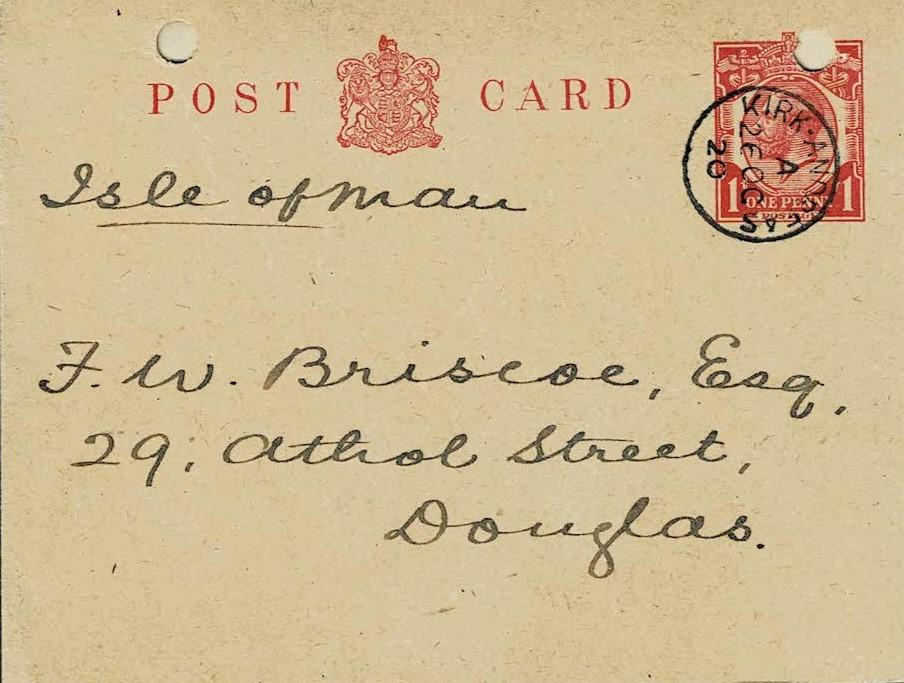 POST CARD
KIRK·ANDREAS
A
26 OC
20
1 ONE PENNY 1
POSTAGE
Isle of Man
F. W. Briscoe, Esq,
29, Athol Street,
Douglas.